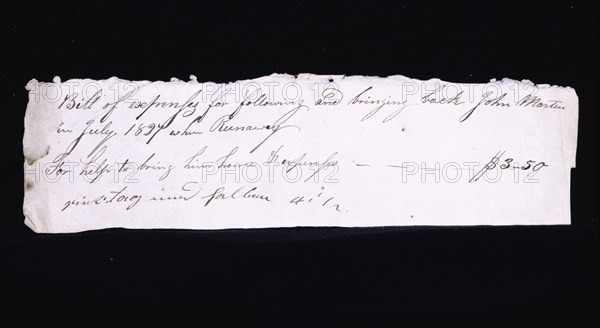 Bill of expenses for following and bringing back John Martin
in July, 1827 when Runaway
For help to bring him home & expenses — — $3-50
PHOTO12 PHOTO12 PHOTO12 PHOTO12 PHOTO12
PHOTO12 PHOTO12 PHOTO12 PHOTO12 PHOTO12